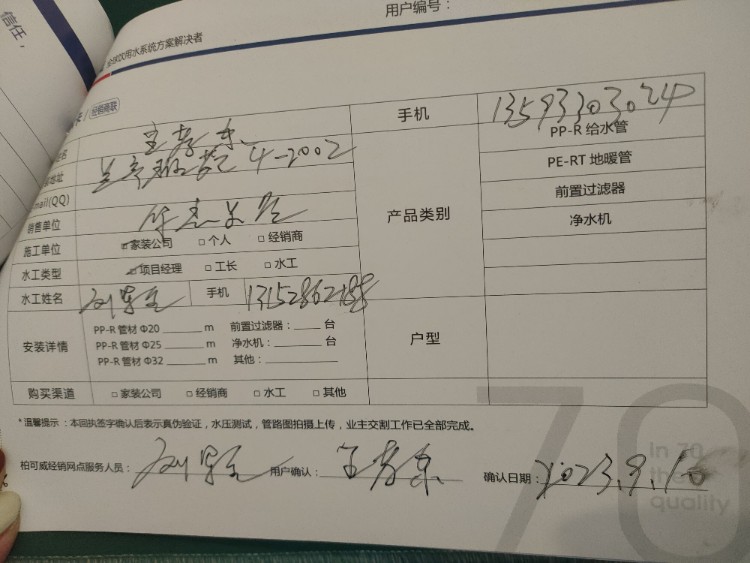 信任,
用户编号:
全球饮用水系统方案解决者
经销商联
手机 13593303024
地址 4-2002
PP-R 给水管
Email(QQ)
PE-RT 地暖管
销售单位
产品类别
前置过滤器
施工单位 ☑家装公司 □个人 □经销商
净水机
水工类型 ☑项目经理 □工长 □水工
水工姓名 手机 13152862188
安装详情 PP-R 管材 Φ20 ______ m 前置过滤器:____ 台
户型
PP-R 管材 Φ25 ______ m 净水机:______ 台
PP-R 管材 Φ32 ______ m 其他:________
购买渠道 □家装公司 □经销商 □水工 □其他
*温馨提示:本回执签字确认后表示真伪验证,水压测试,管路图拍摄上传,业主交割工作已全部完成。
柏可威经销网点服务人员: 用户确认: 确认日期: 2023.9.10
70
In 70
the
quality